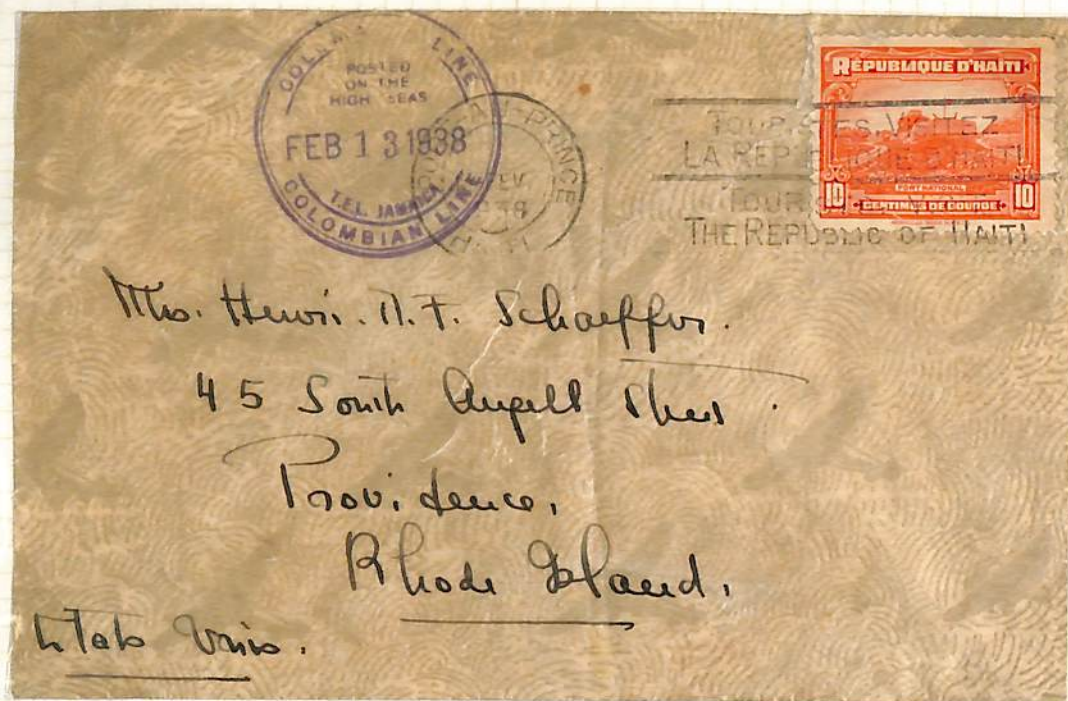 COLOMBIAN LINE
POSTED
ON THE
HIGH SEAS
FEB 13 1938
T.E.L. JAMAICA
COLOMBIAN LINE
PORT-AU-PRINCE
1938
HAITI
TOURISTES VISITEZ
LA REPUBLIQUE D'HAITI
TOURISTS VISIT
THE REPUBLIC OF HAITI
RÉPUBLIQUE D'HAÏTI
FORT NATIONAL
10 CENTIMES DE GOURDE 10
Mrs. Henri. M. F. Schaeffer.
45 South Angell Street.
Providence,
Rhode Island.
Etats Unis.